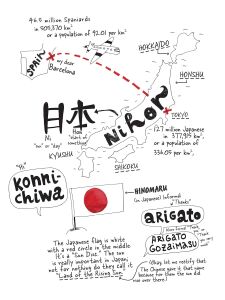 46.5 million Spaniards
in 505,370 km²
or a population of 92.01 per km²
SPAIN
my dear
Barcelona
HOKKAIDO
HONSHU
TOKYO
日本
Ni
Hon
"sun" or "day"
Nihon
127 million Japanese
in 377,915 km²,
or a population of
336.05 per km².
KYUSHU
SHIKOKU
"Hi"
KONNI-
CHIWA
HINOMARU
(in Japanese) Informal
"Thanks"
ARIGATO
More formal "Thank
you very
ARIGATO
GOZAIMASU
The Japanese flag is white
with a red circle in the middle
It's a "Sun Disc." The sun
is really important in Japan;
not for nothing do they call it
"Land of the Rising Sun"
(Okay, let me rectify that
The Chinese gave it that name
because for them the sun did
rise over there!)